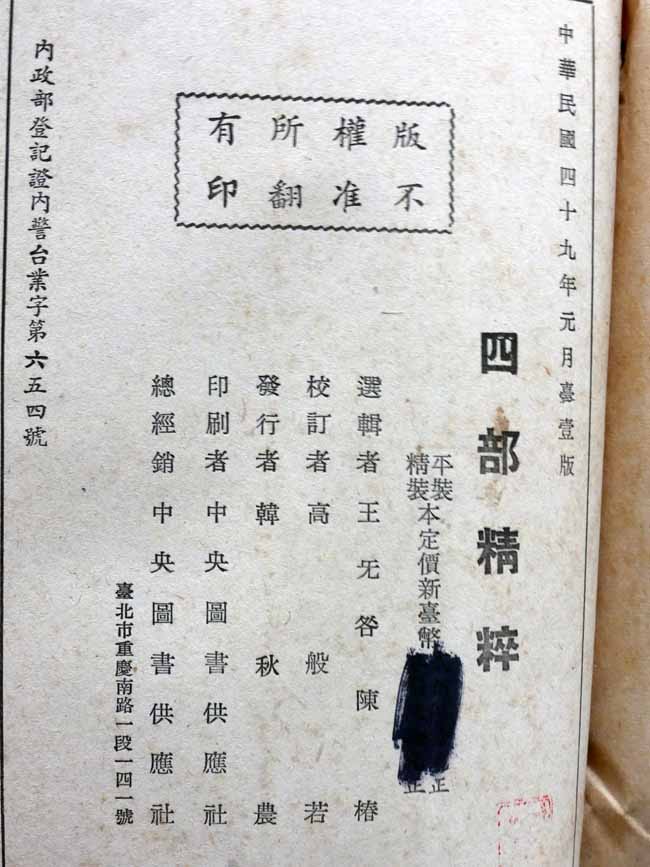 中華民國四十九年元月臺壹版
四部精粹
平裝
精裝
本定價新臺幣
正
正
版權所有
不准翻印
選輯者王旡咎陳椿
校訂者高般若
發行者韓秋農
印刷者中央圖書供應社
總經銷中央圖書供應社
臺北市重慶南路一段一四一號
內政部登記證內警台業字第六五四號